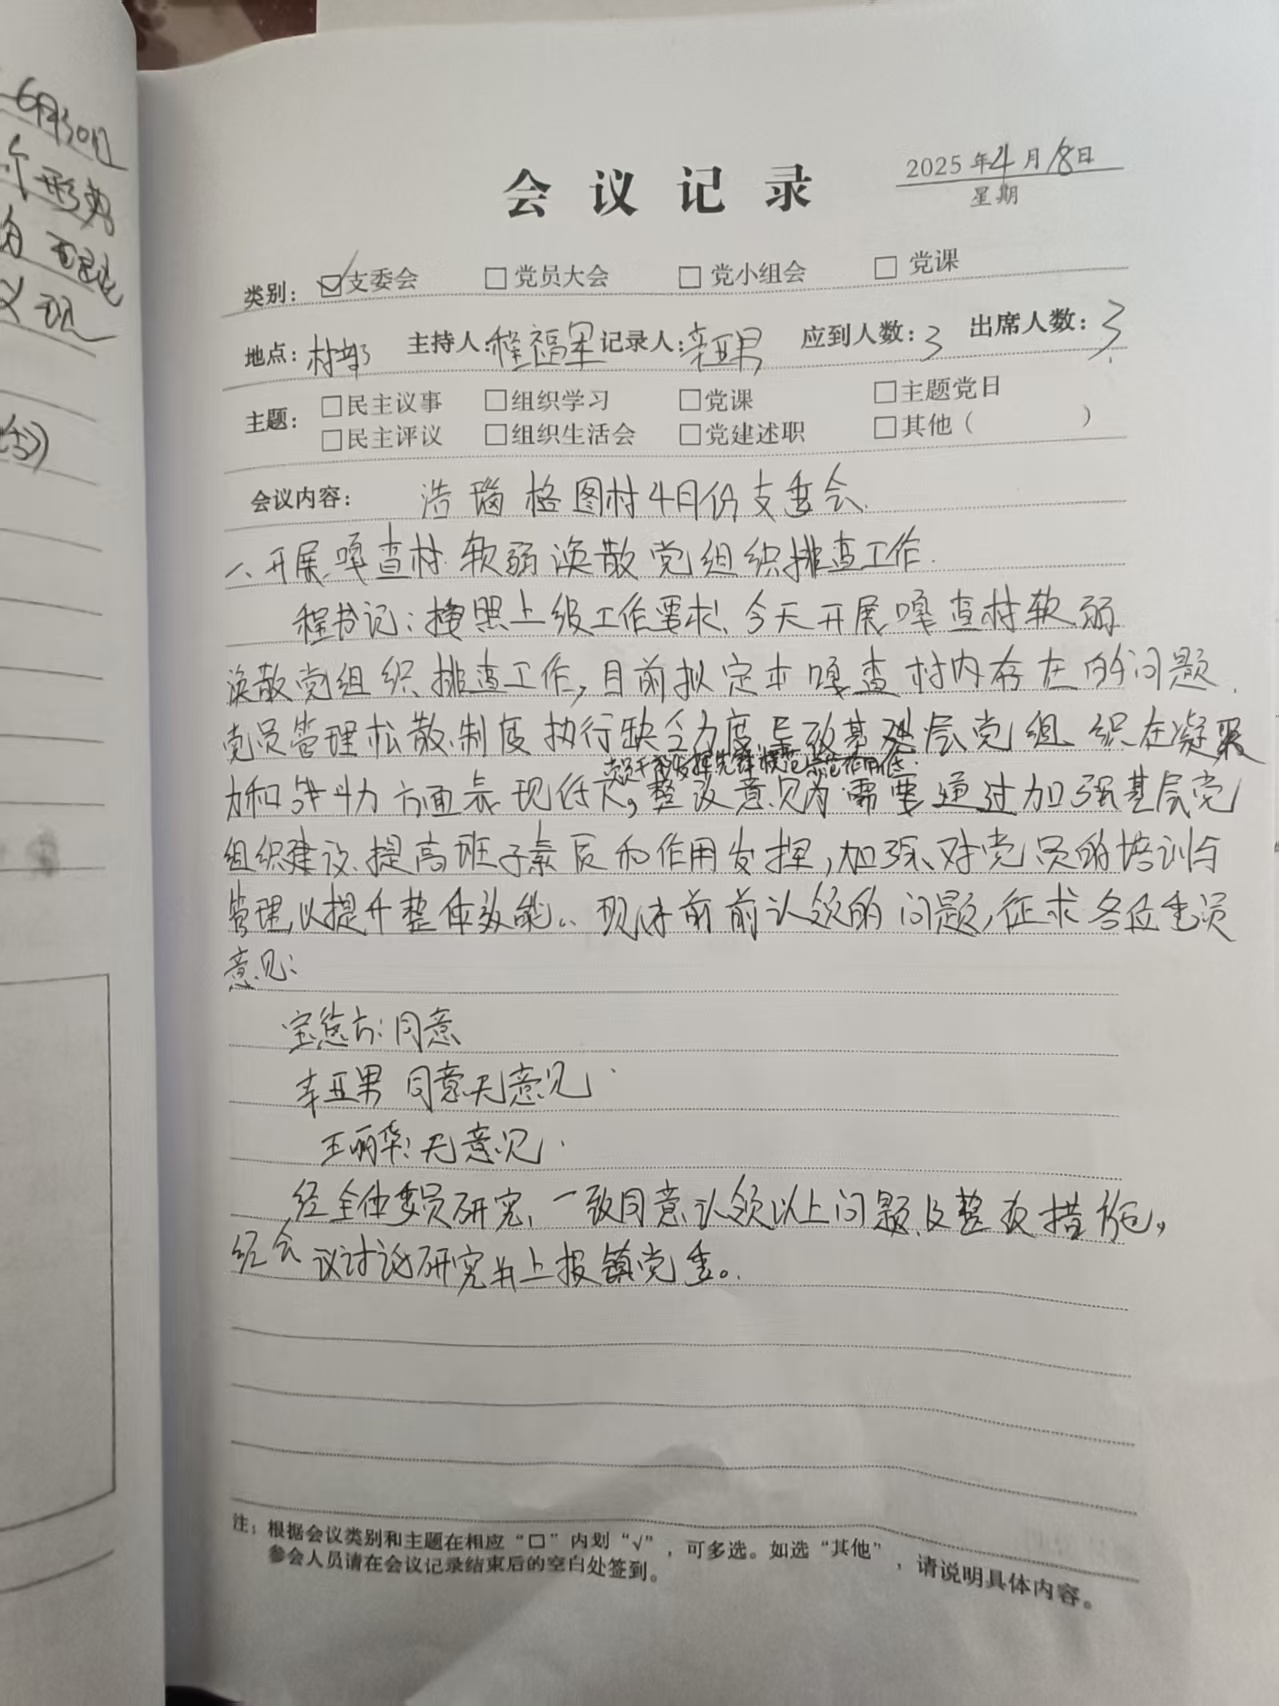 6月30日
会议记录
2025年4月18日
星期
类别: ☑支委会 □党员大会 □党小组会 □党课
地点: 村部 主持人: 程福军 记录人: 辛亚男 应到人数: 3 出席人数: 3
主题: □民主议事 □组织学习 □党课 □主题党日
□民主评议 □组织生活会 □党建述职 □其他( )
会议内容: 浩瑙格图村4月份支委会
一、开展嘎查村软弱涣散党组织排查工作.
程书记: 按照上级工作要求、今天开展嘎查村软弱
涣散党组织排查工作, 目前拟定本嘎查村内存在的问题
党员管理松散、制度执行缺乏力度导致基层党组织在凝聚
党员干部发挥先锋模范示范作用低.
力和战斗力方面表现低下, 整改意见为需要通过加强基层党
组织建设、提高班子素质和作用发挥, 加强对党员的培训与
管理, 以提升整体效能。现对前认领的问题, 征求各位委员
意见:
同意
辛亚男 同意无意见.
王丽华: 无意见.
经全体委员研究、一致同意认领以上问题及整改措施,
经会议讨论研究并上报镇党委。
注: 根据会议类别和主题在相应“□”内划“√”, 可多选。如选“其他”, 请说明具体内容。
参会人员请在会议记录结束后的空白处签到。